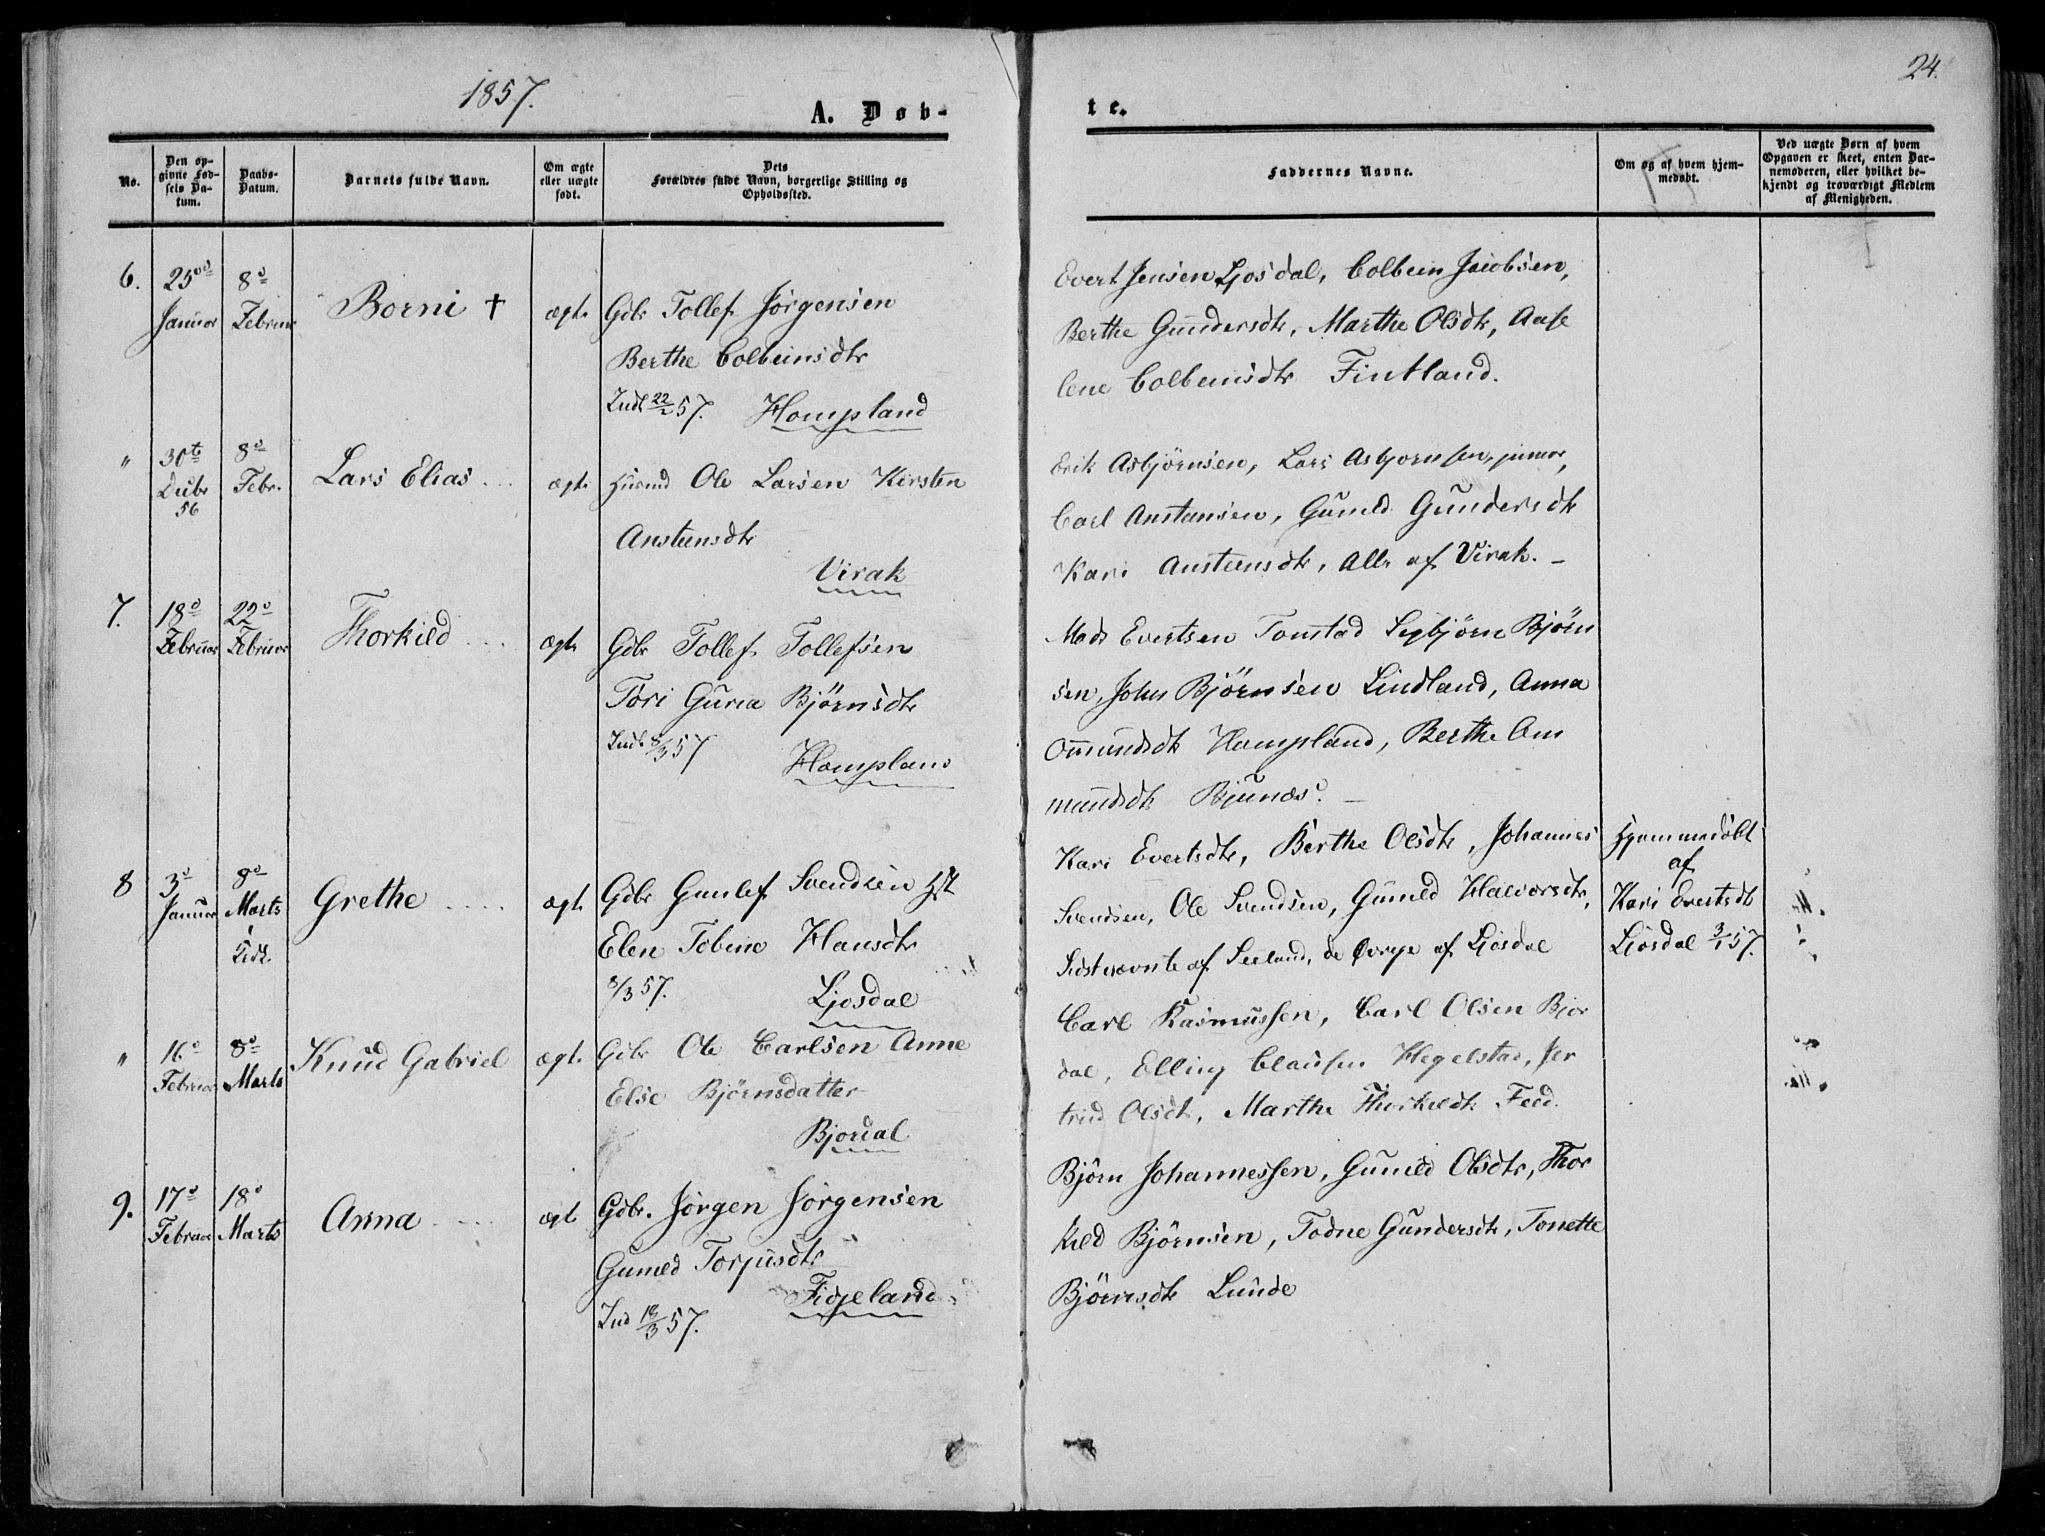 1857.
24.
A. Døb-
te.
No.
Den op-
givne Fød-
sels Da-
tum.
Daabs-
Datum.
Barnets fulde Navn.
Om ægte
eller uægte
født.
Dets
Forældres fulde Navn, borgerlige Stilling og
Opholdssted.
Faddernes Navne.
Om og af hvem hjem-
medøbt.
Ved uægte Børn af hvem
Opgaven er skeet, enten Bar-
nemoderen, eller hvilket be-
kjendt og troværdigt Medlem
af Menigheden.
6.
25
Januar
8d
Februar
Borni †
ægte
Gdbr Tollef Jørgensen
Berthe Colbeinsdtr
Indl 22/2 57. Hompland
Evert Jensen Ljosdal, Colbein Jacobsen,
Berthe Gundersdtr, Marthe Olsdtr, Aase
lene Colbeinsdtr Fintland.
"
30te
Decbr
56
8d
Febr.
Lars Elias
ægte
Husmd Ole Larsen Kirsten
Austeensdtr
Virak
Erik Asbjørnsen, Lars Asbjornsen junior,
Carl Austensen, Guneld Gundersdtr
Kari Austeensdtr, Alle af Virak. –
7.
18d
Februar
22d
Februar
Thorkild
ægte
Gdbr Tollef Tollefsen
Tori Guria Bjørnsdtr
Indl 8/3 57
Hompland
Mads Evertsen Tonstad Sigbjørn Bjørn
sen, John Bjørnsen Lindland, Anna
Omundsdtr Hompland, Berthe Om
mundsdtr Bjunæs. –
8
3d
Januar
8d
Marts
i
Kirk.
Grethe
ægte
Gdbr Gunlef Svendsen
Elen Tobine Hansdtr
8/3 57.
Ljosdal
Kari Evertsdtr, Berthe Olsdtr, Johannes
Svendsen, Ole Svendsen, Guneld Halvorsdtr,
Sidstnævnte af Seeland, de Øvrige af Ljosdal
Hjemmedøbt
af
Kari Evertsdtr
Ljosdal 3/1 57.
"
16d
Februar
8d
Marts
Knud Gabriel
ægte
Gdbr Ole Carlsen Anne
Else Bjørnsdatter
Bjordal
Carl Rasmussen, Carl Olsen Bjor
dal, Elling Clausen Hegelstad, Jer
trud Olsdtr, Marthe Thorkildsdtr Feed.
9.
17d
Februar
18d
Marts
Anna
ægte
Gdbr. Jørgen Jørgensen
Guneld Torjusdtr
Fidjeland
Ind 18/3 57.
Bjørn Johannessen, Guneld Olsdtr, Thor
kild Bjørnsen, Todne Gundersdtr, Tonette
Bjørnsdtr Lunde